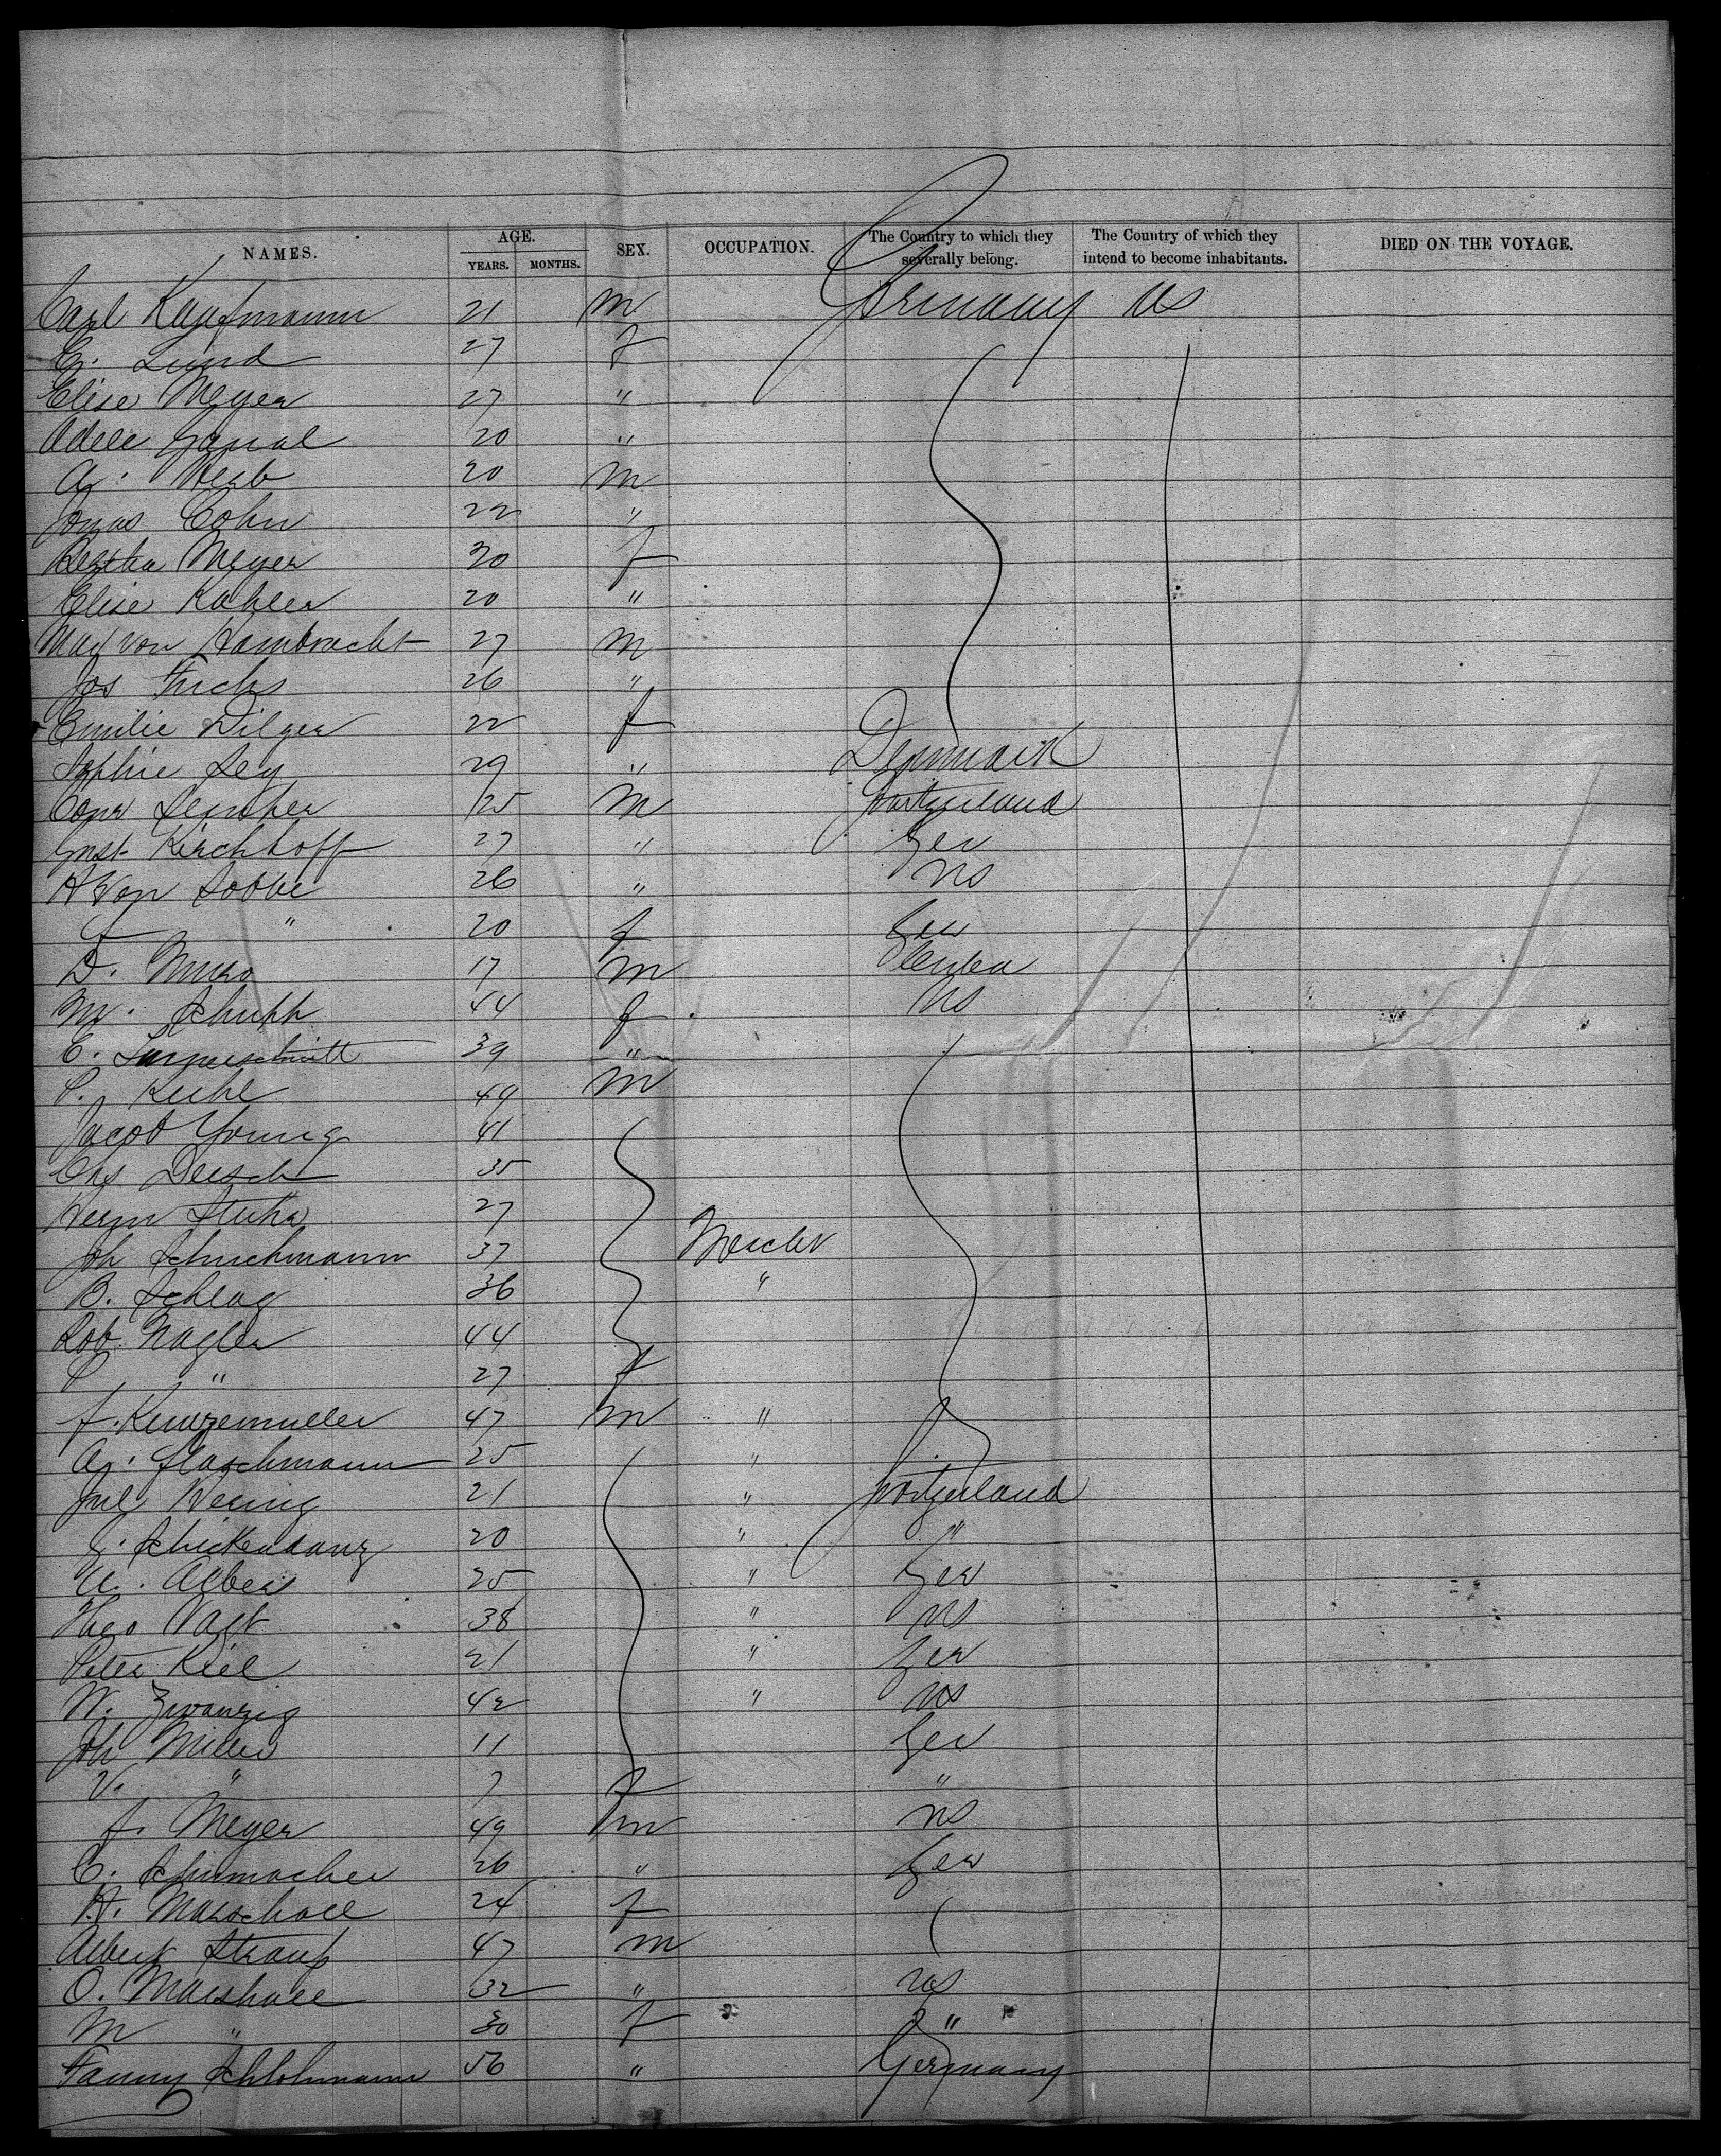 NAMES. AGE. SEX. OCCUPATION. The Country to which they severally belong. The Country of which they intend to become inhabitants. DIED ON THE VOYAGE.
YEARS. MONTHS.
Carl Kaufmann 21 m Germany US
E. Lund 27 f
Elise Meyer 27 "
Adele 20 "
A. 20 m
Jonas Cohn 22 "
Bertha Meyer 30 f
Elise Kohler 20 "
Max von Hambracht 27 m
Jos Fuchs 26 "
Emilie Dilger 22 f
Sophie Ley 29 " Denmark
Conr 25 m Switzerland
Gust Kirchhoff 27 " Ger
H Von Sobbe 26 " US
" 20 f Ger
D. 17 m Cuba
M. Schupp 44 f US
E. 39 "
P. 49 m
Jacob Young 41
Chs Deesch 35
Herm 27
Joh Schuchmann 37 Merchr
B. Schlag 36 "
Rob. Nagler 44
P " 27 f
F. Kunzemueller 47 m "
A. Flaschmann 25 "
Jul Hering 21 " Switzerland
G. Schickedanz 20 " "
A. Alber 25 " Ger
Theo Vagt 38 " US
Peter Kiel 21 " Ger
W. Zwanzig 42 " US
Joh Miller 11 Ger
V. " 7 f "
F. Meyer 49 m US
C. Schumacher 26 " Ger
H. Marschall 24 f
Albert Strauss 47 m
O. Marshall 32 " US
M " 30 f "
Fanny Schlohmann 56 " Germany